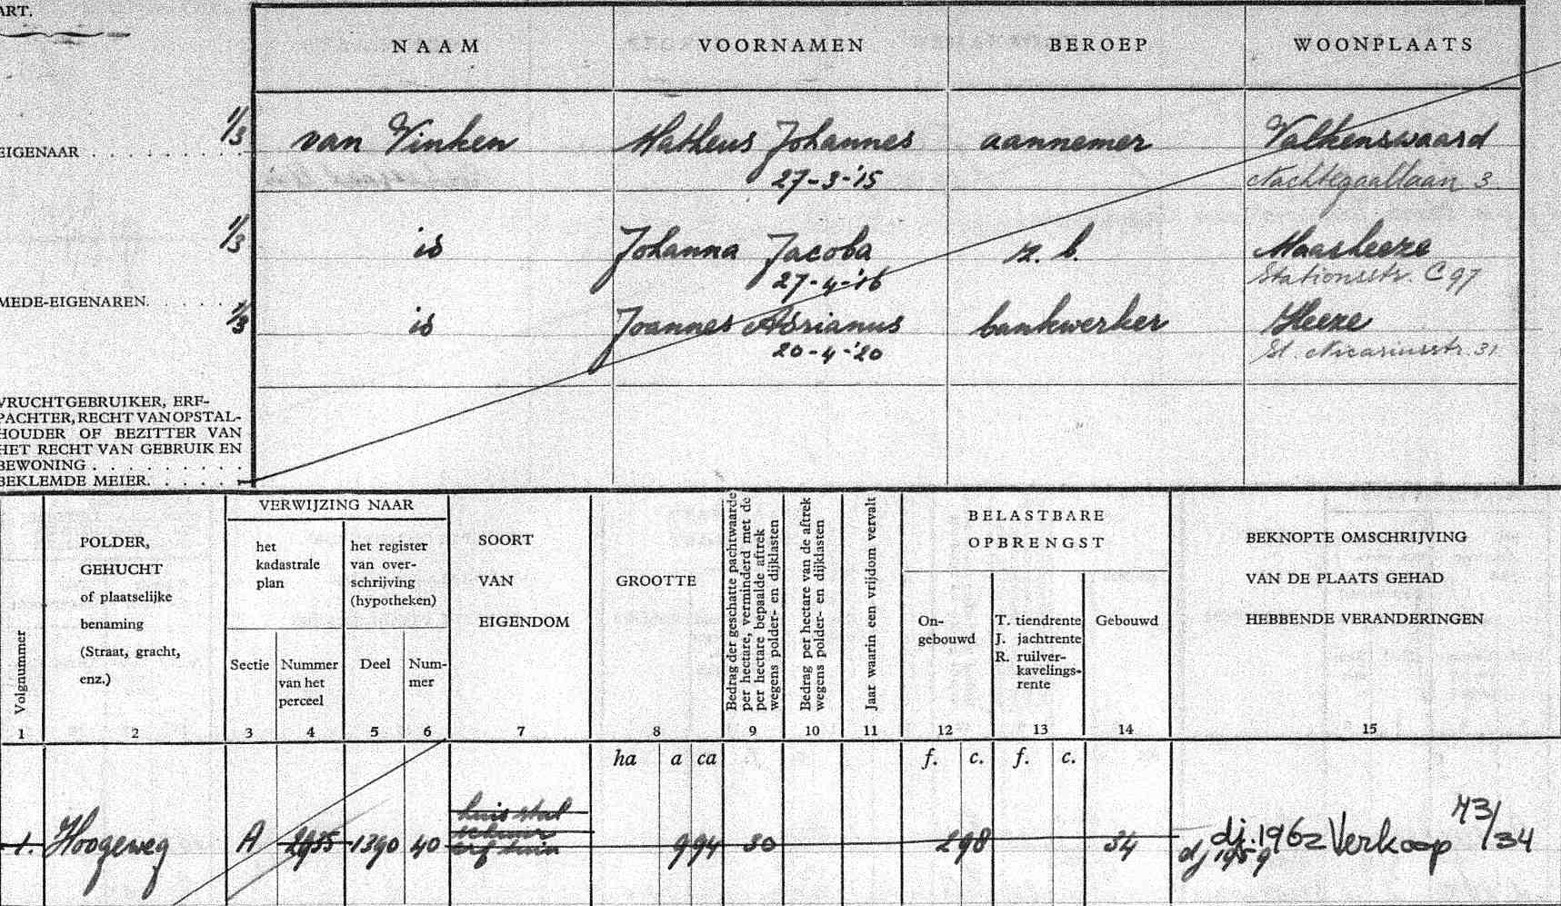 ART.
NAAM VOORNAMEN BEROEP WOONPLAATS
EIGENAAR . . . . . . . . . 1/3 van Vinken Matheus Johannes aannemer Valkenswaard
27-3-'15 Nachtegaallaan 3
1/3 is Johanna Jacoba z. b. Maarheeze
27-4-'16 Stationsstr. C 97
MEDE-EIGENAREN. . . . . . 1/3 is Joannes Adrianus bankwerker Heeze
20-4-'20 St. Nicasiusstr. 31
VRUCHTGEBRUIKER, ERF-
PACHTER, RECHT VAN OPSTAL-
HOUDER OF BEZITTER VAN
HET RECHT VAN GEBRUIK EN
BEWONING . . . . . . . . .
BEKLEMDE MEIER. . . . . .
Volgnummer
1
POLDER,
GEHUCHT
of plaatselijke
benaming
(Straat, gracht,
enz.)
2
VERWIJZING NAAR
het
kadastrale
plan
Sectie
3
Nummer
van het
perceel
4
het register
van over-
schrijving
(hypotheken)
Deel
5
Num-
mer
6
SOORT
VAN
EIGENDOM
7
GROOTTE
8
Bedrag der geschatte pachtwaarde
per hectare, verminderd met de
per hectare bepaalde aftrek
wegens polder- en dijklasten
9
Bedrag per hectare van de aftrek
wegens polder- en dijklasten
10
Jaar waarin een vrijdom vervalt
11
BELASTBARE
OPBRENGST
On-
gebouwd
12
T. tiendrente
J. jachtrente
R. ruilver-
kavelings-
rente
13
Gebouwd
14
BEKNOPTE OMSCHRIJVING
VAN DE PLAATS GEHAD
HEBBENDE VERANDERINGEN
15
ha a ca f. c. f. c.
huis stal
schuur
1. Hoogeweg A 2955 1390 40 erf tuin 9 94 30 2 98 34 dj. 1962 Verkoop 73/34
dj 1959